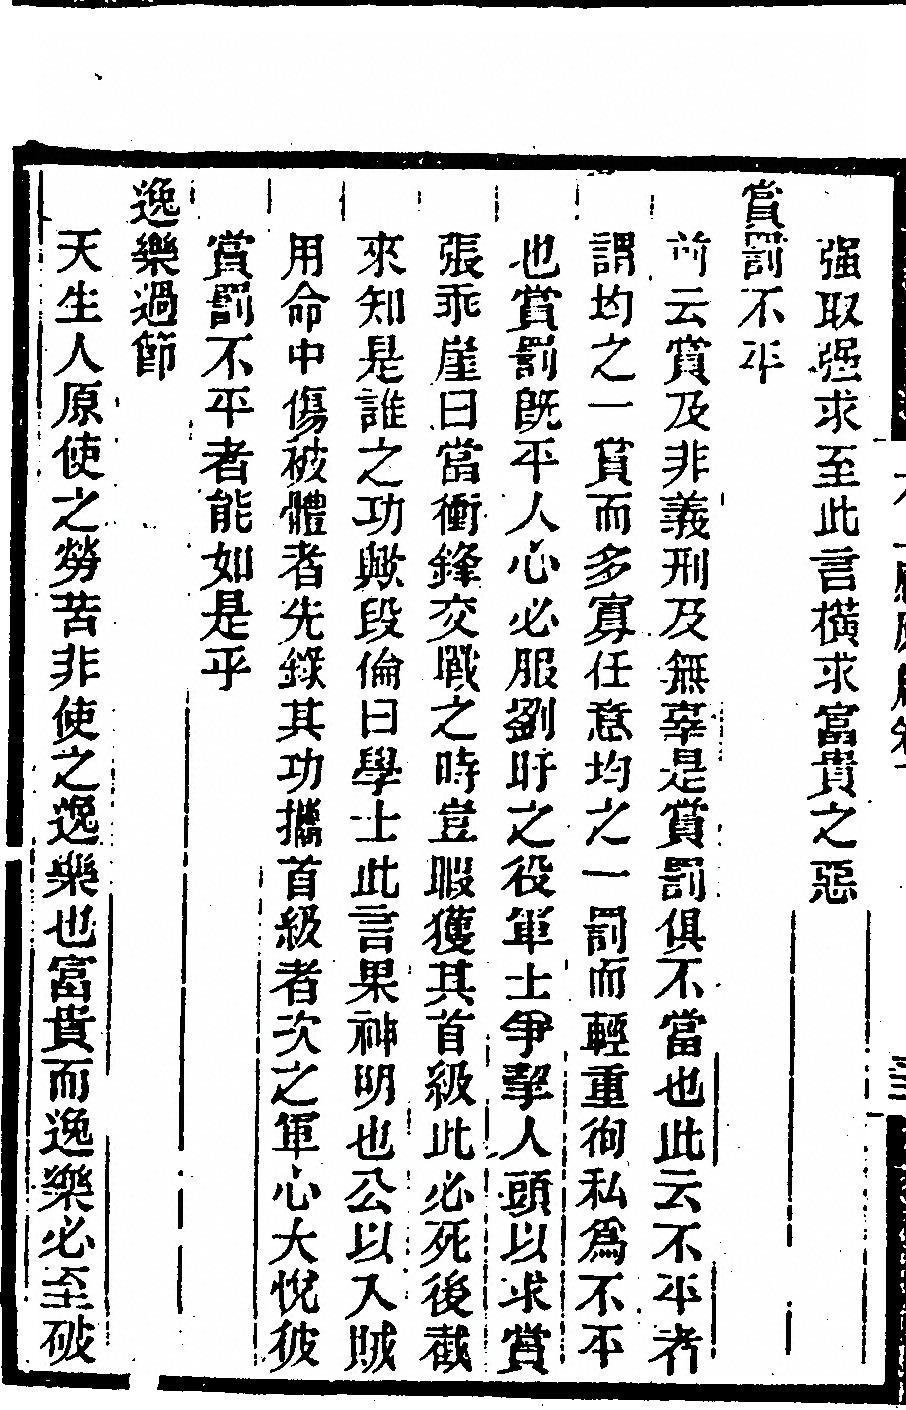 强取强求至此言橫求富貴之惡
賞罰不平
前云賞及非義刑及無辜是賞罰俱不當也此云不平者
謂均之一賞而多寡任意均之一罰而輕重徇私爲不平
也賞罰既平人心必服劉盱之役軍士爭挈人頭以求賞
張乖崖曰當衝鋒交戰之時豈暇獲其首級此必死後截
來知是誰之功歟段倫曰學士此言果神明也公以入賊
用命中傷破體者先錄其功擕首級者次之軍心大悅彼
賞罰不平者能如是乎
逸樂過節
天生人原使之勞苦非使之逸樂也富貴而逸樂必至破